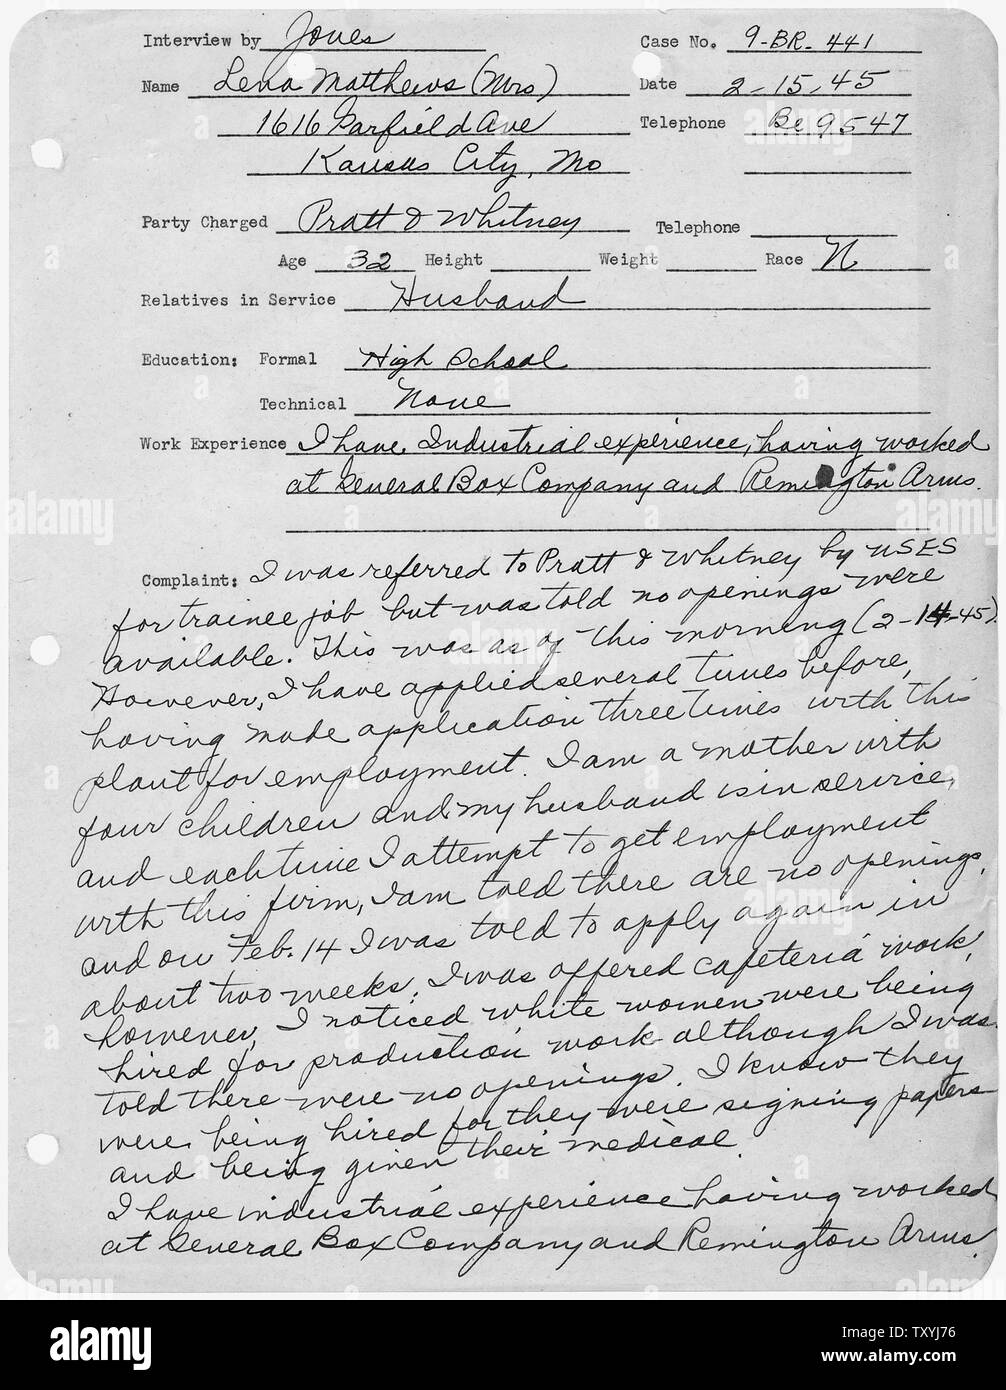 Interview by Jones Case No. 9-BR-441
Name Lena Matthews (Mrs) Date 2-15-45
1616 Garfield Ave Telephone Be 9547
Kansas City, Mo
Party Charged Pratt & Whitney Telephone
Age 32 Height Weight Race N
Relatives in Service Husband
Education: Formal High School
Technical None
Work Experience I have Industrial experience, having worked
at General Box Company and Remington Arms.
Complaint: I was referred to Pratt & Whitney by USES
for trainee job but was told no openings were
available. This was as of this morning (2-14-45).
However, I have applied several times before,
having made application three times with this
plant for employment. I am a mother with
four children and my husband is in service,
and each time I attempt to get employment
with this firm, I am told there are no openings,
and on Feb. 14 I was told to apply again in
about two weeks. I was offered cafeteria work,
however, I noticed white women were being
hired for production work although I was
told there were no openings. I know they
were being hired for they were signing papers
and being given their medical.
I have industrial experience having worked
at General Box Company and Remington Arms.
alamy
Image ID: TXYJ76
www.alamy.com